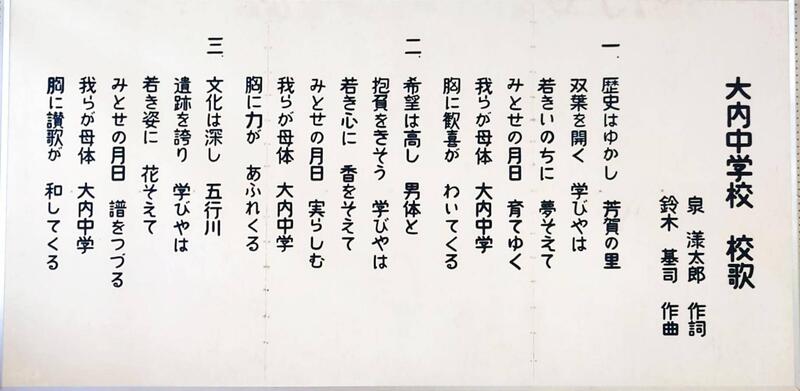 大内中学校 校歌
泉 漾太郎 作詞
鈴木 基司 作曲
一、歴史はゆかし 芳賀の里
双葉を開く 学びやは
若きいのちに 夢そえて
みとせの月日 育てゆく
我らが母体 大内中学
胸に歓喜が わいてくる
二、希望は高し 男体と
抱負をきそう 学びやは
若き心に 香をそえて
みとせの月日 実らしむ
我らが母体 大内中学
胸に力が あふれくる
三、文化は深し 五行川
遺跡を誇り 学びやは
若き姿に 花そえて
みとせの月日 譜をつづる
我らが母体 大内中学
胸に讃歌が 和してくる